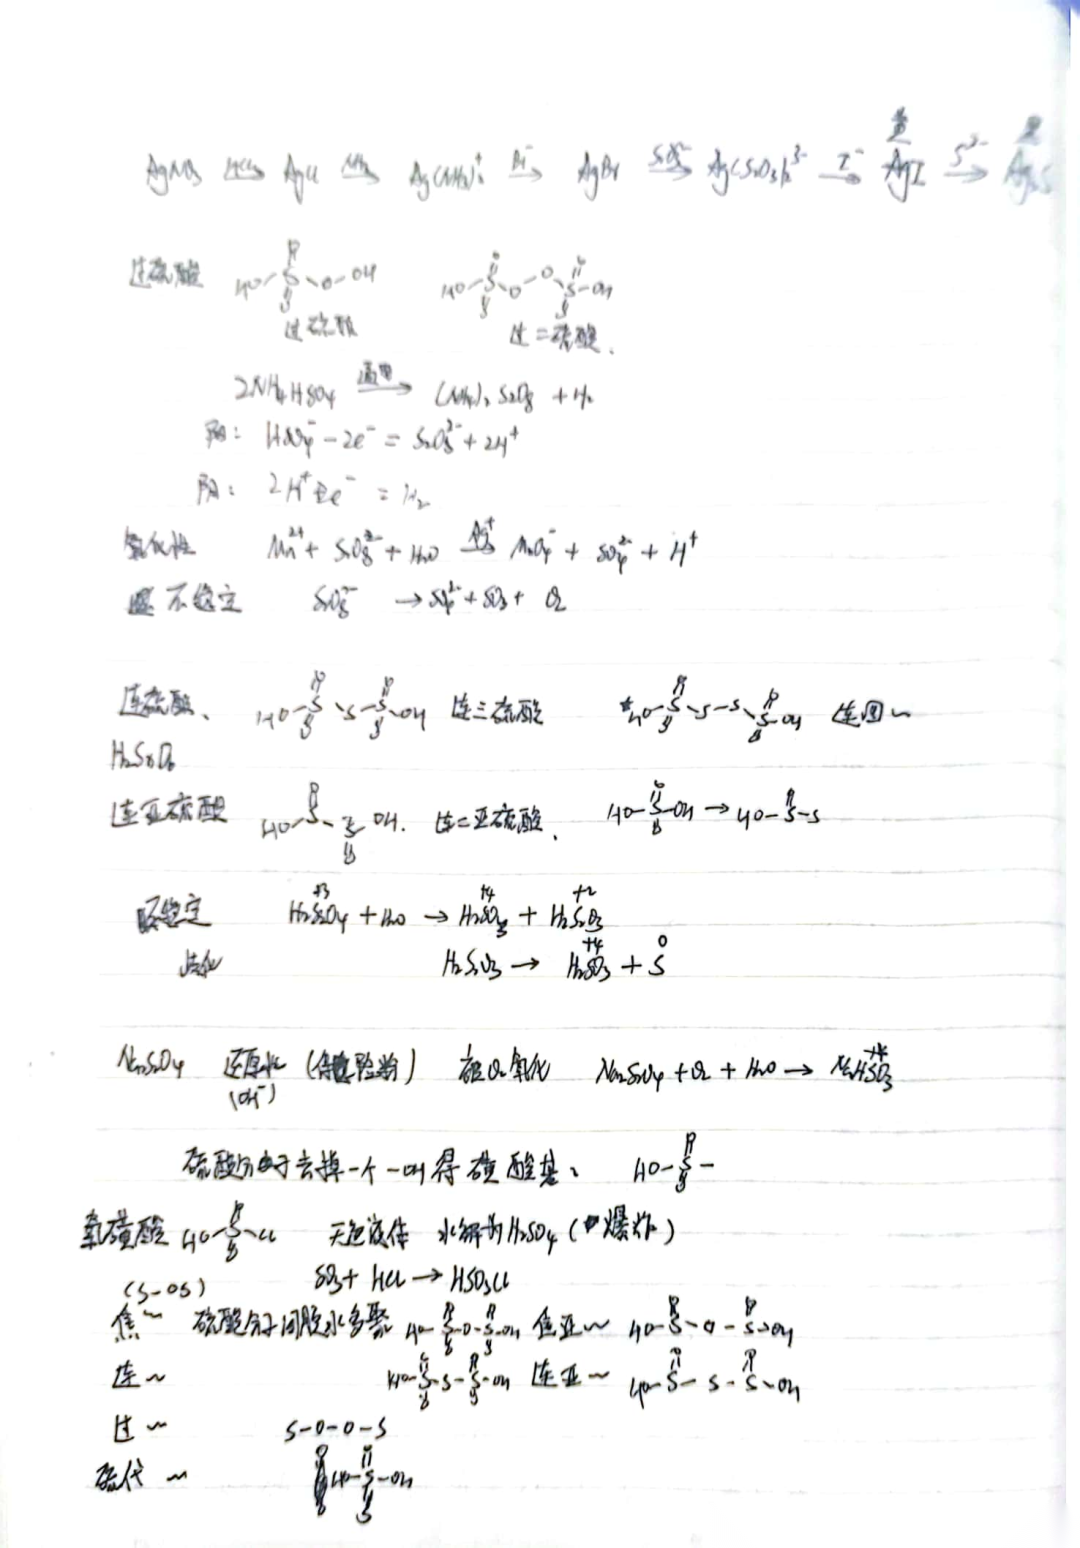 黄 黑
AgNO₃ →(HCl) AgCl →(NH₃) Ag(NH₃)₂⁺ →(Br⁻) AgBr →(S₂O₃²⁻) Ag(S₂O₃)₂³⁻ →(I⁻) AgI →(S²⁻) Ag₂S
过硫酸 HO-S-O-OH HO-S-O-O-S-OH
过硫酸 过二硫酸.
2NH₄HSO₄ →(通电) (NH₄)₂S₂O₈ + H₂
阳: HSO₄⁻ - 2e⁻ = S₂O₈²⁻ + 2H⁺
阴: 2H⁺ + 2e⁻ = H₂
氧化性 Mn²⁺ + S₂O₈²⁻ + H₂O →(Ag⁺) MnO₄⁻ + SO₄²⁻ + H⁺
不稳定 S₂O₈²⁻ → SO₄²⁻ + SO₃ + O₂
连硫酸、 HO-S-S-S-OH 连三硫酸 HO-S-S-S-S-OH 连四~
H₂SₓO₆
连亚硫酸 HO-S-S-OH. 连二亚硫酸. HO-S-OH → HO-S-S
稳定 H₂S₂O₄ + H₂O → H₂SO₃ + H₂S₂O₃
+3 +4 +2
歧化 H₂S₂O₃ → H₂SO₃ + S
+4 0
Na₂S₂O₄ 还原性 (保险粉) 被O₂氧化 Na₂S₂O₄ + O₂ + H₂O → NaHSO₃
(OH⁻) +4
硫酸分子去掉一个-OH得磺酸基、 HO-S-
氯磺酸 HO-S-Cl 无色液体 水解为H₂SO₄ (爆炸)
(S-OS) SO₃ + HCl → HSO₃Cl
焦~ 硫酸分子间脱水多聚 HO-S-O-S-OH 焦亚~ HO-S-O-S-OH
连~ HO-S-S-S-OH 连亚~ HO-S-S-S-OH
过~ S-O-O-S
硫代~ HO-S-OH